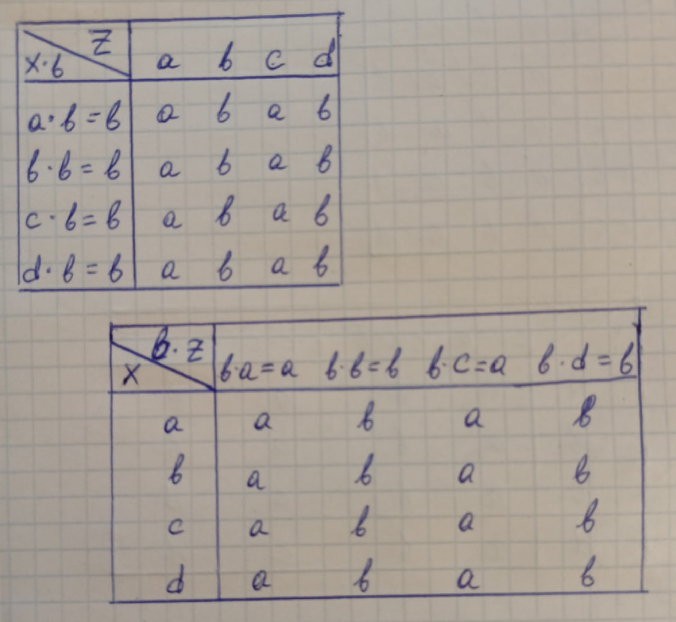 z
x·b a b c d
a·b = b a b a b
b·b = b a b a b
c·b = b a b a b
d·b = b a b a b
b·z
x b·a = a b·b = b b·c = a b·d = b
a a b a b
b a b a b
c a b a b
d a b a b